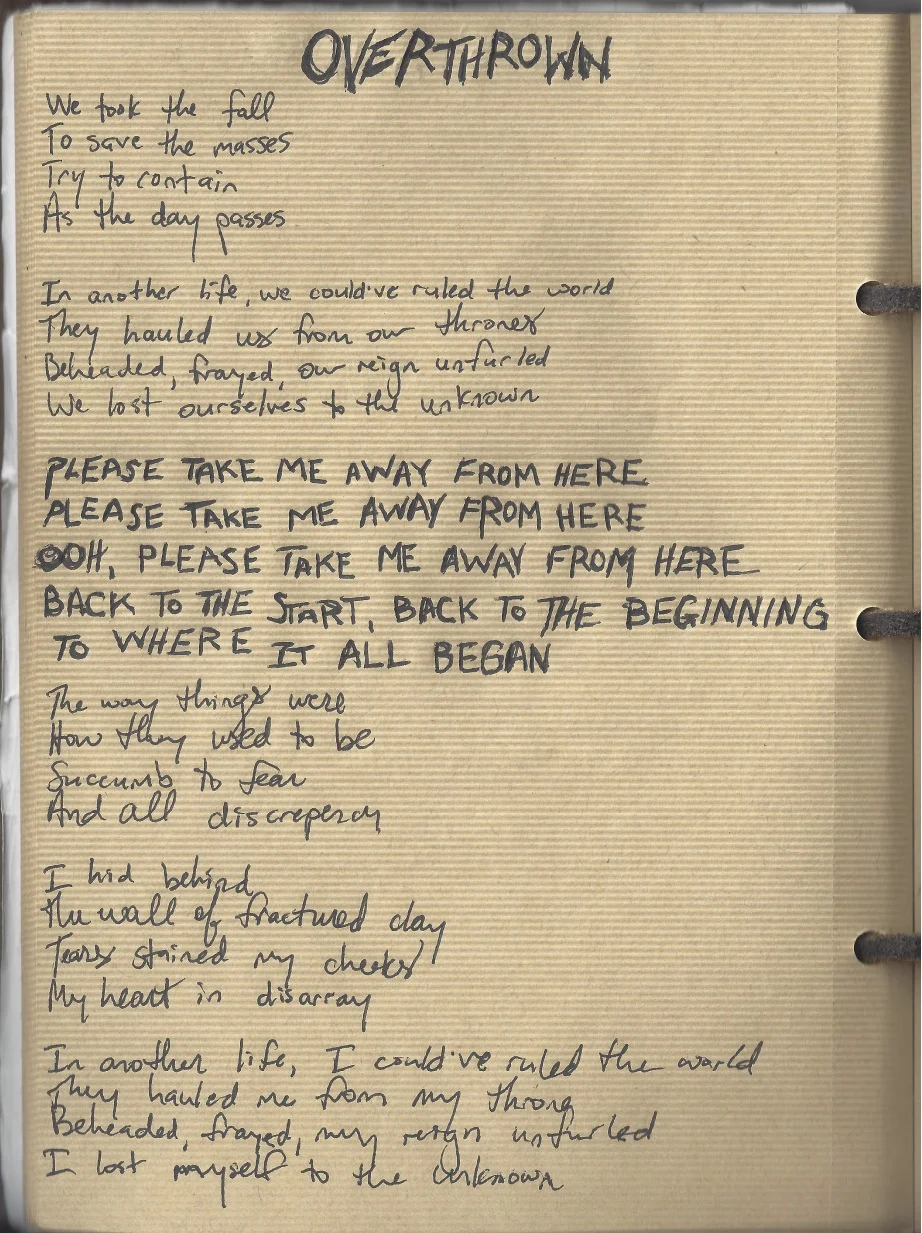 OVERTHROWN
We took the fall
To save the masses
Try to contain
As the day passes
In another life, we could've ruled the world
They hauled us from our thrones
Beheaded, frayed, our reign unfurled
We lost ourselves to the unknown
PLEASE TAKE ME AWAY FROM HERE
PLEASE TAKE ME AWAY FROM HERE
OOH, PLEASE TAKE ME AWAY FROM HERE
BACK TO THE START, BACK TO THE BEGINNING
TO WHERE IT ALL BEGAN
The way things were
How they used to be
Succumb to fear
And all discrepency
I hid behind
The wall of fractured clay
Tears stained my cheeks
My heart in disarray
In another life, I could've ruled the world
They hauled me from my throne
Beheaded, frayed, my reign unfurled
I lost myself to the unknown